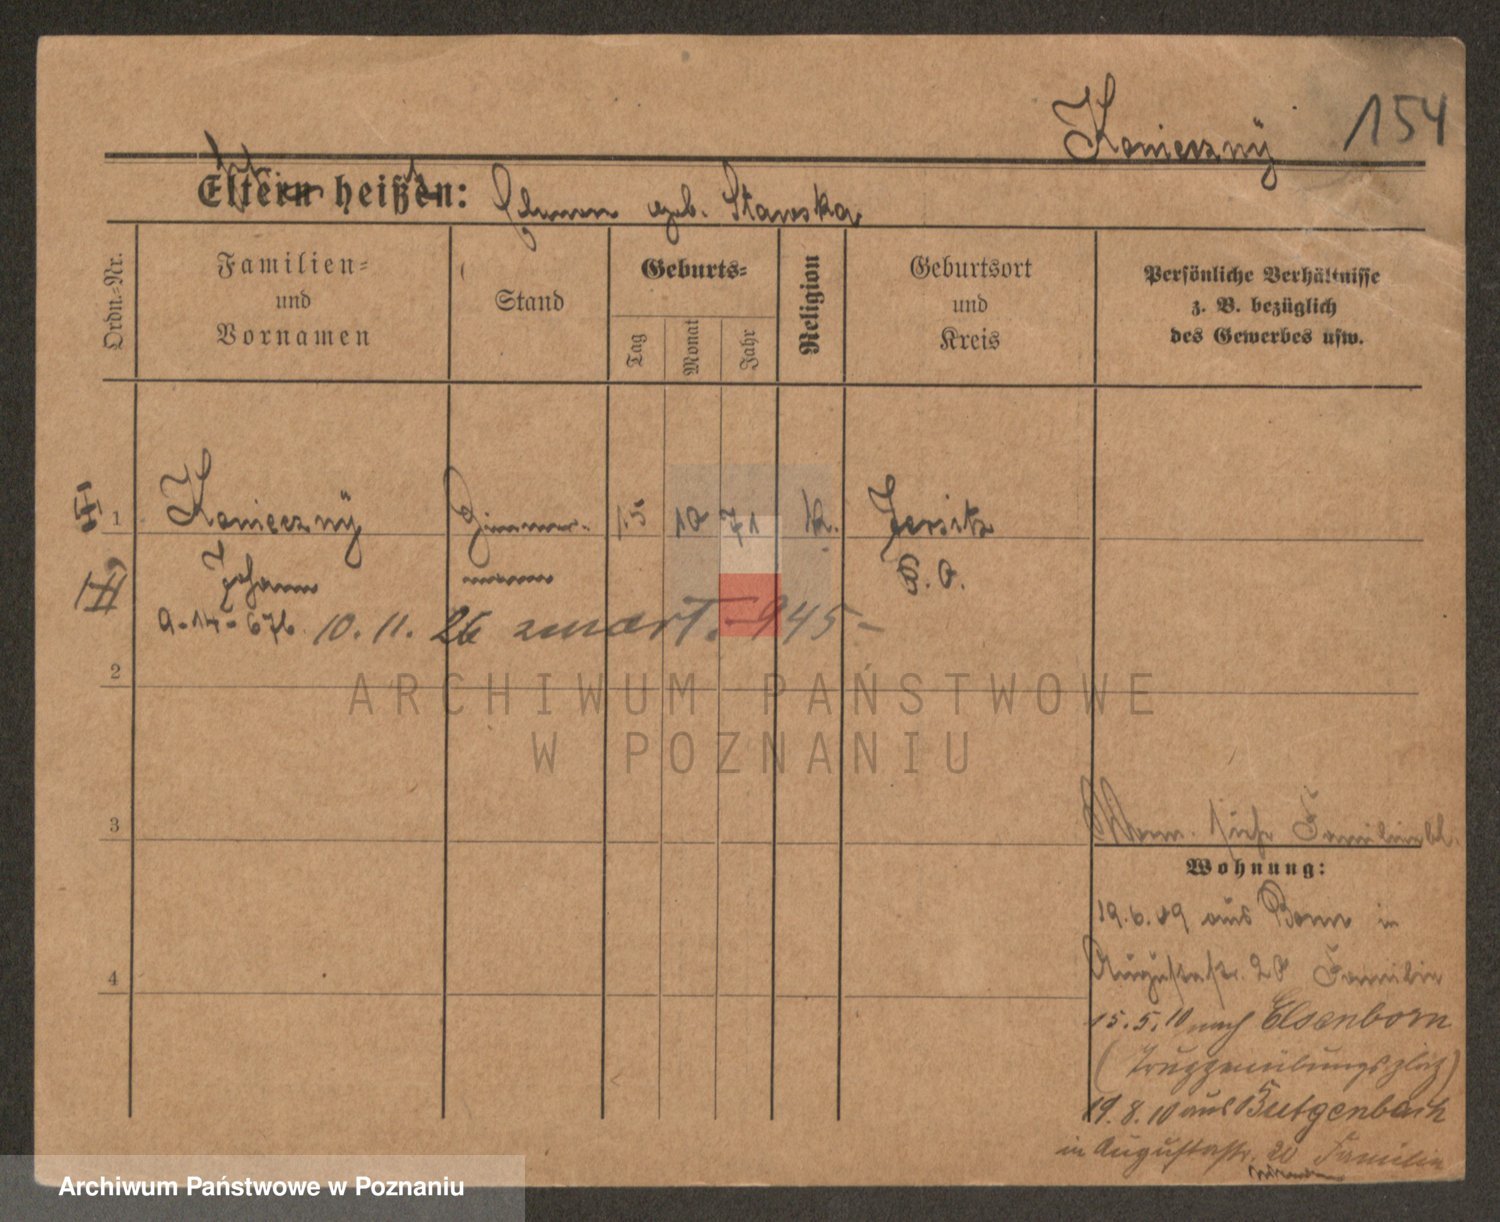 Konieczny 154
Eltern heißen: geb. Staneska
Ordn.-Nr.
Familien-
und
Vornamen
Stand
Geburts-
Tag
Monat
Jahr
Religion
Geburtsort
und
Kreis
Persönliche Verhältnisse
z. B. bezüglich
des Gewerbes usw.
1 Konieczny Zimmer- 15 10 71 k. Jersitz
Johann mann P. O.
9-14-676 10. 11. 26 zmart. 945-
2
ARCHIWUM PAŃSTWOWE
W POZNANIU
3
siehe Familienbl.
Wohnung:
19.6.09 aus Bonn in
Augustastr. 20 Familie
4
15.5.10 nach Elsenborn
(Truppenübungsplatz)
19.8.10 aus Bütgenbach
in Augustastr. 20 Familie
Archiwum Państwowe w Poznaniu